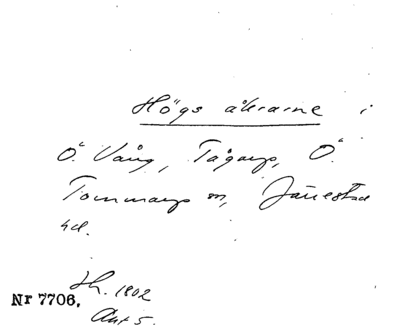 Högs åkrarne i
Ö. Vång, Tågarp, Ö.
Tommarps sn, Järrestad
hd.
Sk. 1802
Akt 5.
Nr 7706.